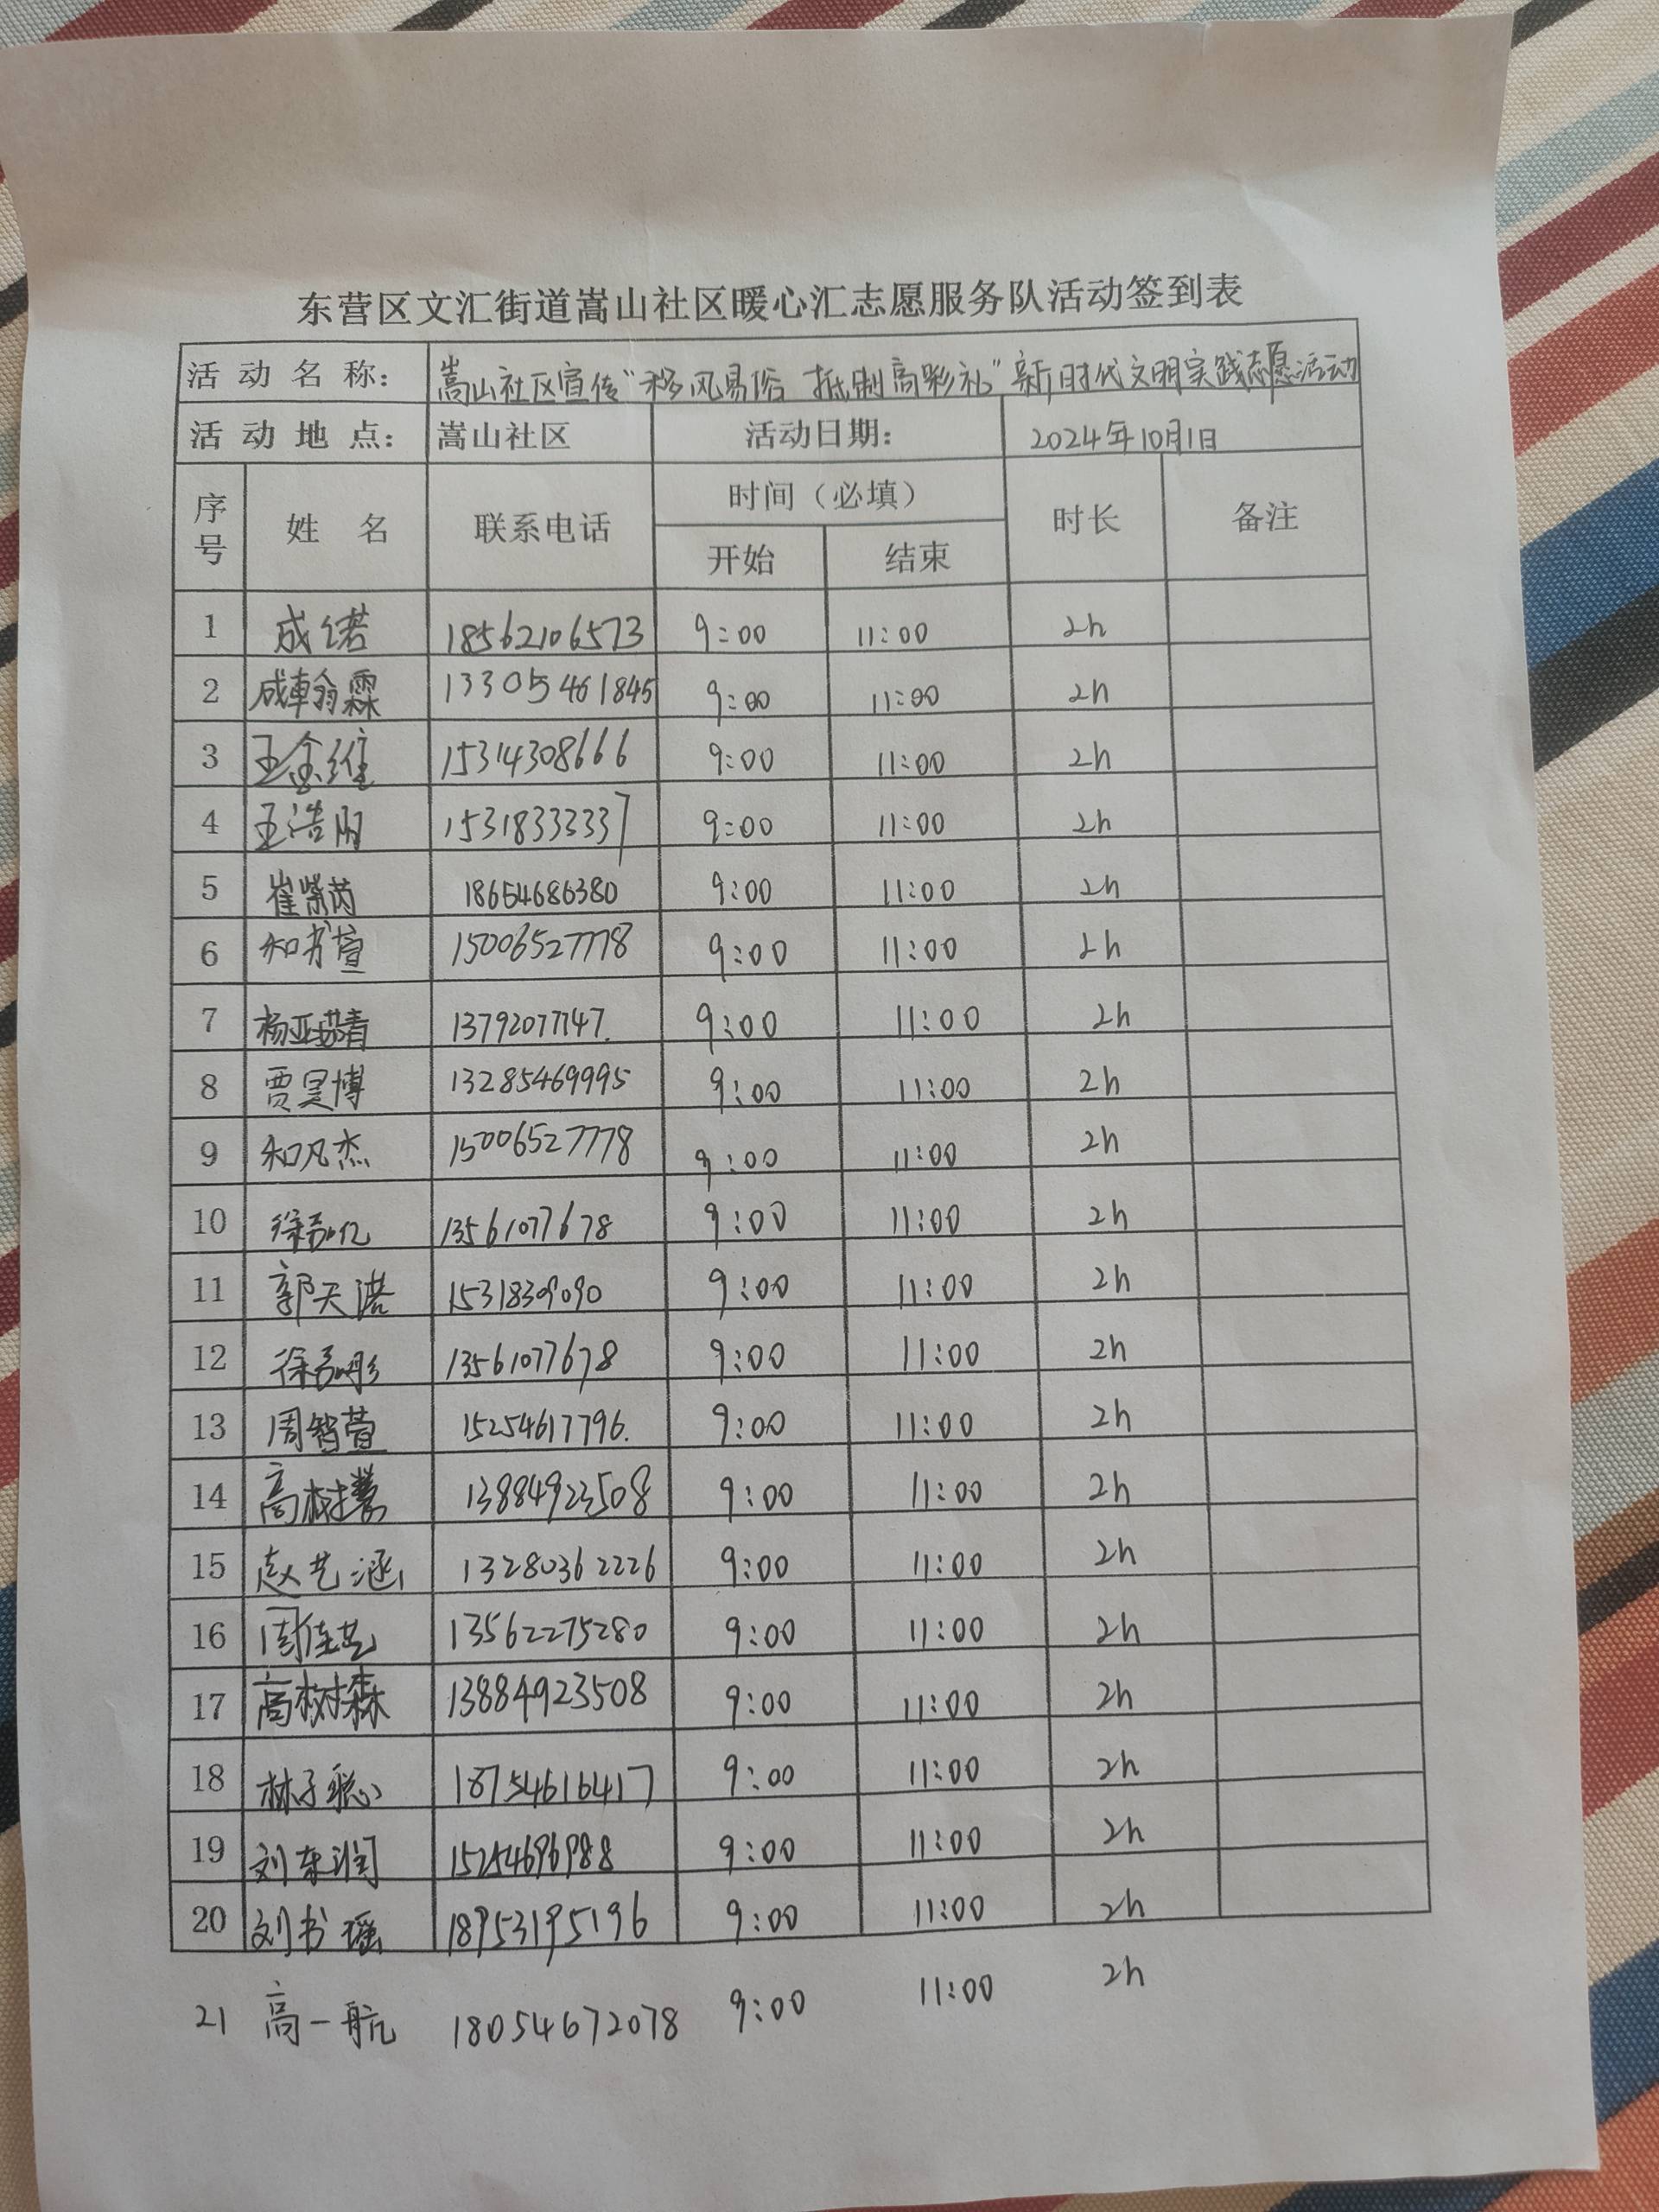 东营区文汇街道嵩山社区暖心汇志愿服务队活动签到表
活动名称： 嵩山社区宣传“移风易俗 抵制高彩礼”新时代文明实践志愿活动
活动地点： 嵩山社区 活动日期： 2024年10月1日
序号 姓名 联系电话 时间（必填） 时长 备注
开始 结束
1 成诺 18562106573 9:00 11:00 2h
2 成翰霖 13305461845 9:00 11:00 2h
3 王金维 15314308666 9:00 11:00 2h
4 王浩 15318333337 9:00 11:00 2h
5 崔紫芮 18654686380 9:00 11:00 2h
6 知书萱 15006527778 9:00 11:00 2h
7 杨亚 13792077147. 9:00 11:00 2h
8 贾昊博 13285469995 9:00 11:00 2h
9 知凡杰 15006527778 9:00 11:00 2h
10 徐 13561077678 9:00 11:00 2h
11 郭天诺 15318309090 9:00 11:00 2h
12 徐 13561077678 9:00 11:00 2h
13 周智萱 15254617796. 9:00 11:00 2h
14 高树 13884923508 9:00 11:00 2h
15 赵艺涵 13280362226 9:00 11:00 2h
16 周佳艺 13562275280 9:00 11:00 2h
17 高树森 13884923508 9:00 11:00 2h
18 林子聪 18754616417 9:00 11:00 2h
19 刘东润 15254696988 9:00 11:00 2h
20 刘书瑶 18953195196 9:00 11:00 2h
21 高一航 18054672078 9:00 11:00 2h